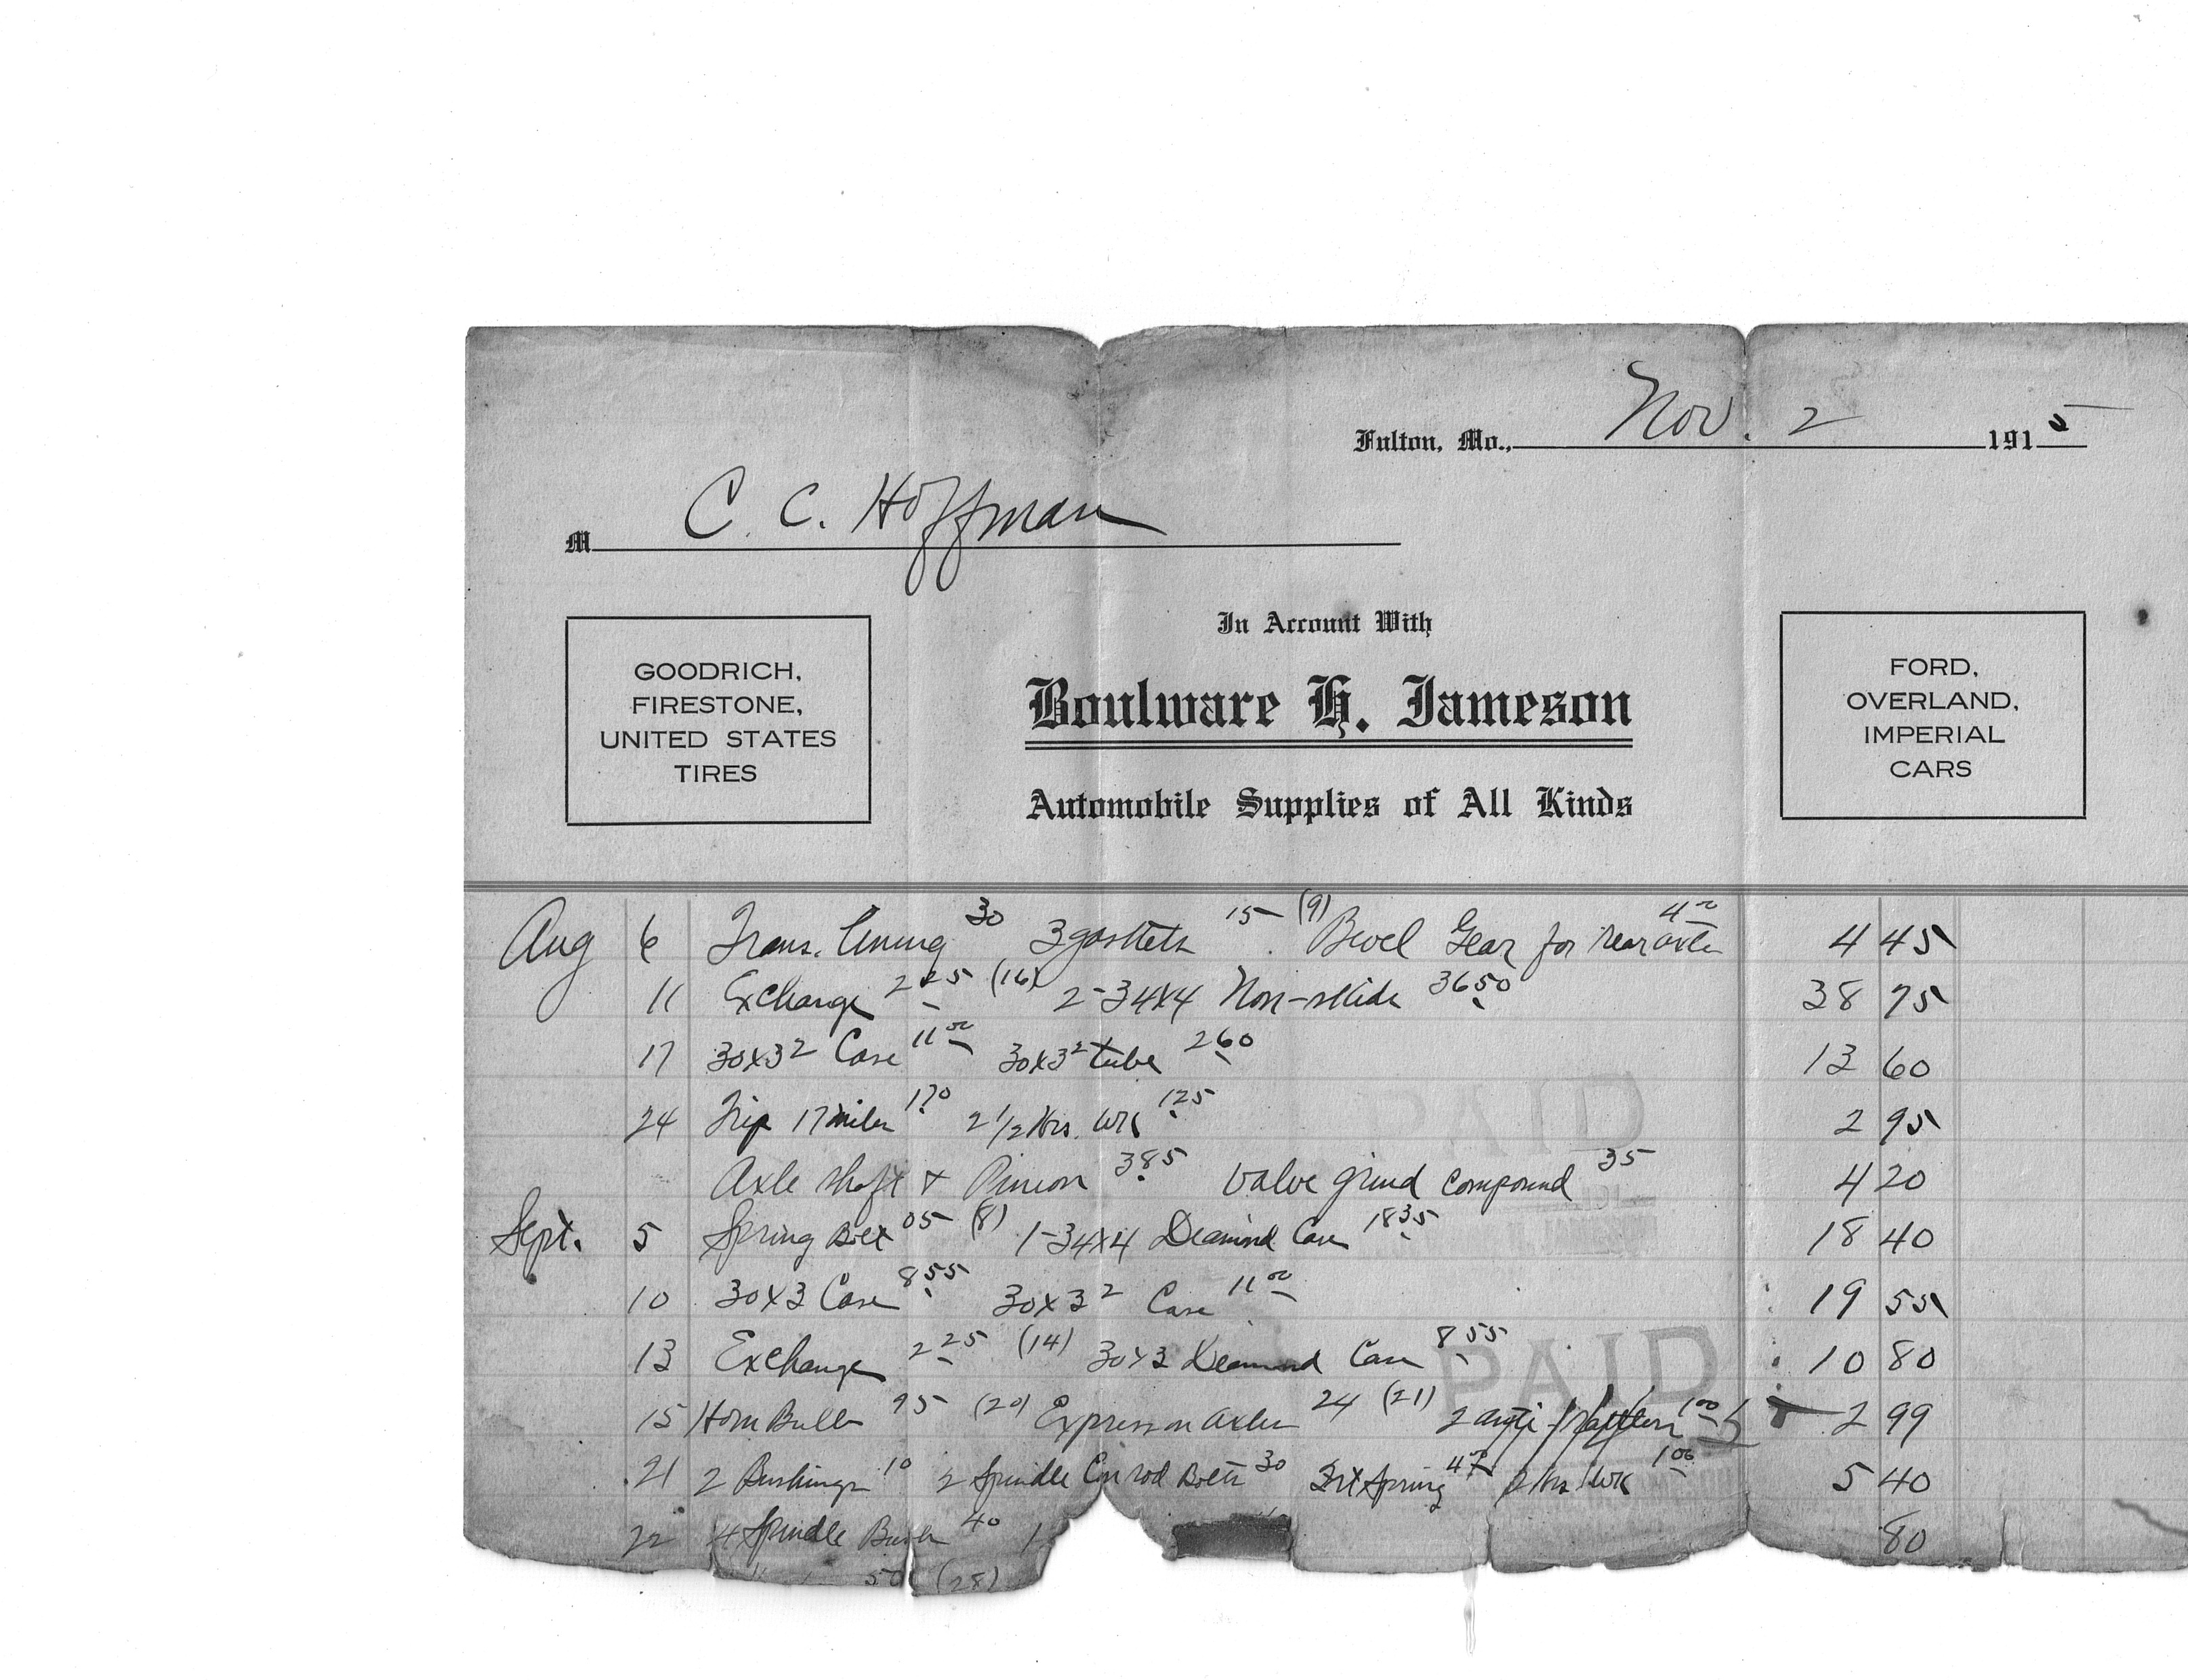 Fulton, Mo., Nov. 2 1915
M C. C. Hoffman
GOODRICH,
FIRESTONE,
UNITED STATES
TIRES
In Account With
Boulware H. Jameson
Automobile Supplies of All Kinds
FORD,
OVERLAND,
IMPERIAL
CARS
Aug 6 Trans. lining 30 3 gaskets 15 (9) Bevel Gear for rear axle 4 00 4 45
11 Exchange 2 25 (16) 2-34x4 Non-skids 36 50 38 75
17 30x3 2 Case 11 00 30x3 2 tube 2 60 13 60
24 Trip 17 miles 1 70 2 1/2 Hrs. Wk 1 25 2 95
Axle shaft & Pinion 3 85 Valve grind compound 35 4 20
Sept. 5 Spring Bolt 05 (8) 1-34x4 Diamond Case 18 35 18 40
10 30x3 Case 8 55 30x3 2 Case 11 00 19 55
13 Exchange 2 25 (14) 30x3 Diamond Case 8 55 10 80
PAID
15 Horn Bulb 95 (20) Express on axles 24 (21) 2 anti-rattlers 1 00 2 99
21 2 Bushings 10 2 Spindle Con rod Bolts 30 Frt Spring 4 00 2 Hrs Wk 1 00 5 40
22 4 Spindle Bush 40 80
50 (28)